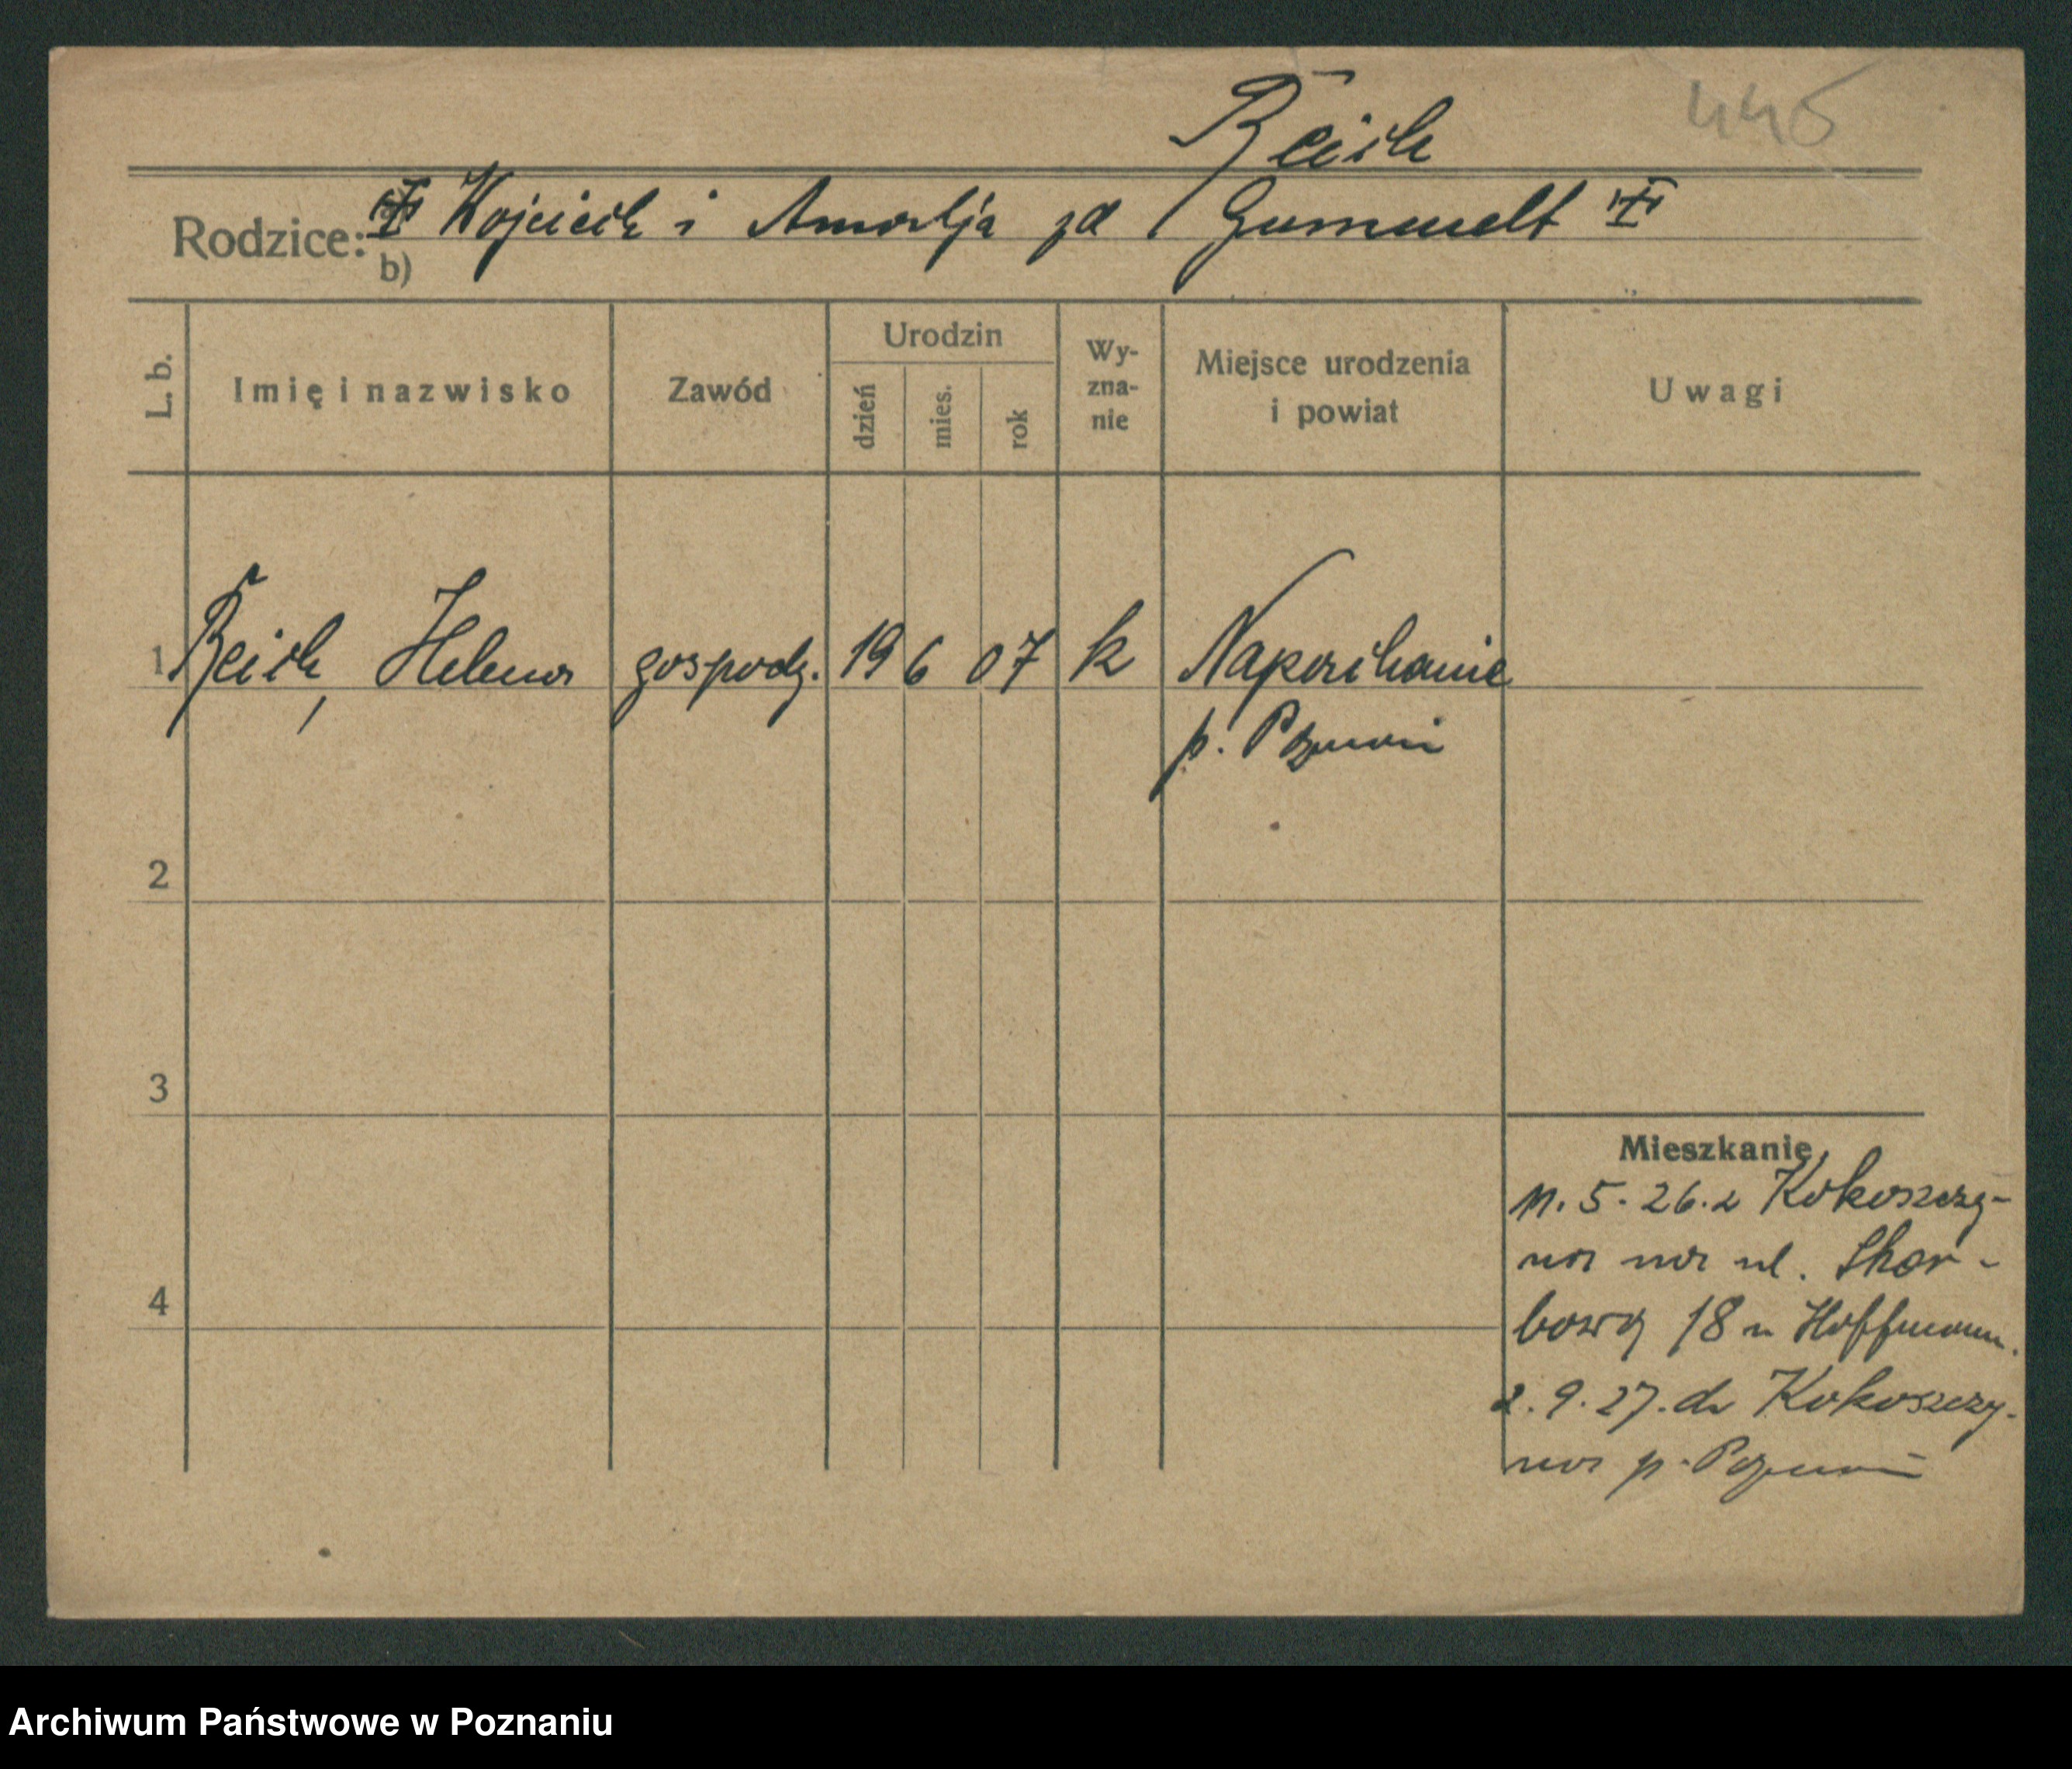 Reich 445
Rodzice: Wojciech i Amalja zd Gummelt
b)
L. b. Imię i nazwisko Zawód Urodzin dzień mies. rok Wyznanie Miejsce urodzenia i powiat Uwagi
1 Reich, Helena gospodz. 19 6 07 k Napachanie
p. Poznań
2
3
Mieszkanie
11. 5. 26. z Kokoszczy-
na na ul. Skar-
4
bową 18 u Hoffmann.
2. 9. 27. do Kokoszczy-
na p. Poznań
Archiwum Państwowe w Poznaniu